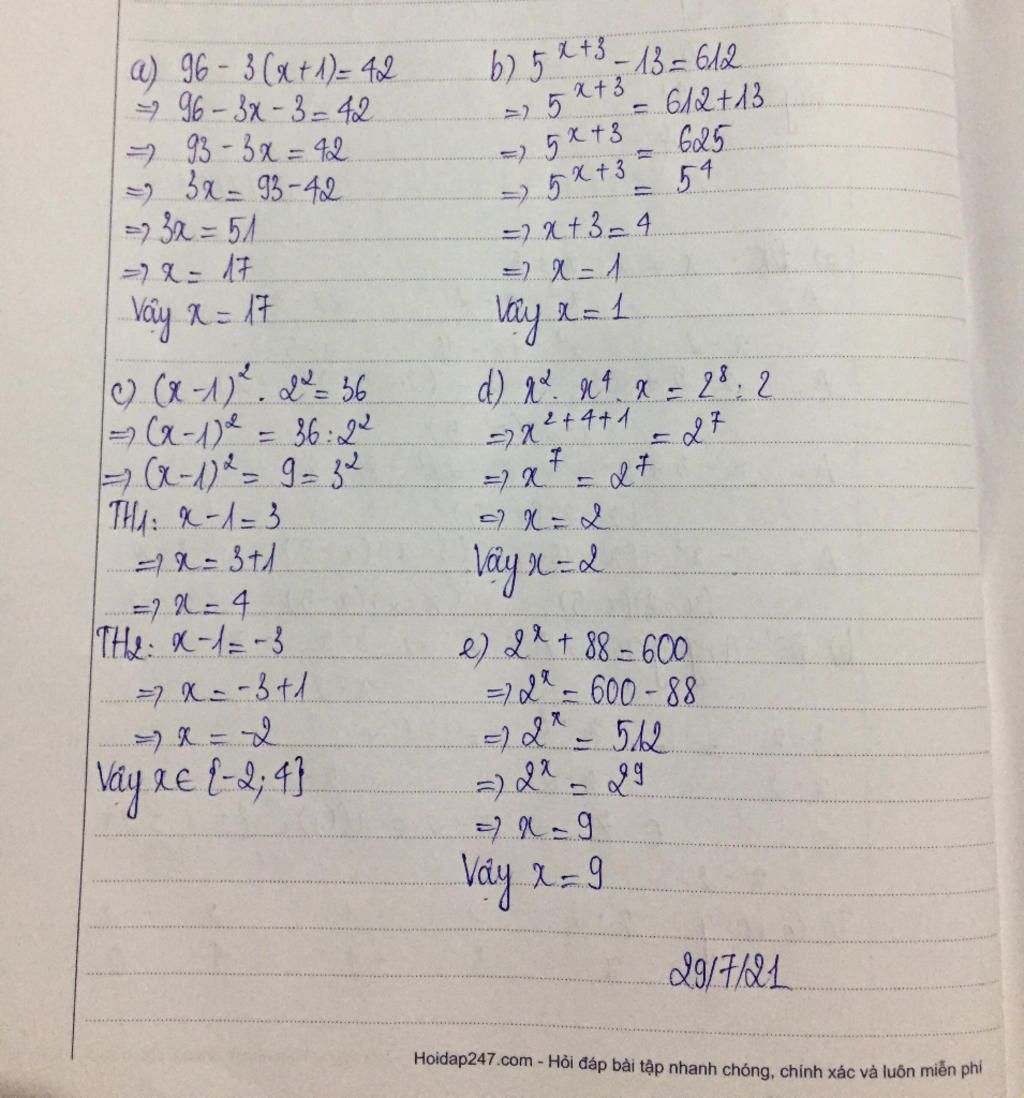 a) 96 - 3(x+1) = 42
=> 96 - 3x - 3 = 42
=> 93 - 3x = 42
=> 3x = 93 - 42
=> 3x = 51
=> x = 17
Vậy x = 17
b) 5^{x+3} - 13 = 612
=> 5^{x+3} = 612 + 13
=> 5^{x+3} = 625
=> 5^{x+3} = 5^4
=> x + 3 = 4
=> x = 1
Vậy x = 1
c) (x-1)^2 . 2^2 = 36
=> (x-1)^2 = 36 : 2^2
=> (x-1)^2 = 9 = 3^2
TH1: x - 1 = 3
=> x = 3 + 1
=> x = 4
TH2: x - 1 = -3
=> x = -3 + 1
=> x = -2
Vậy x ∈ {-2; 4}
d) x^2 . x^4 . x = 2^8 : 2
=> x^{2+4+1} = 2^7
=> x^7 = 2^7
=> x = 2
Vậy x = 2
e) 2^x + 88 = 600
=> 2^x = 600 - 88
=> 2^x = 512
=> 2^x = 2^9
=> x = 9
Vậy x = 9
29/7/21
Hoidap247.com - Hỏi đáp bài tập nhanh chóng, chính xác và luôn miễn phí